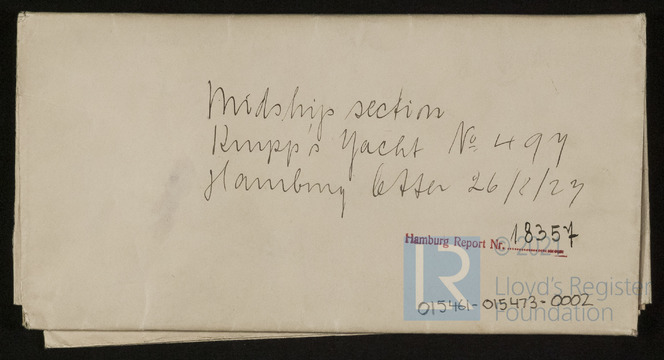 Midship section
Krupp's Yacht No 497
Hamburg letter 26/1/27
Hamburg Report Nr. 18357
© 2021
LR
Lloyd's Register
Foundation
015461-015473-0002